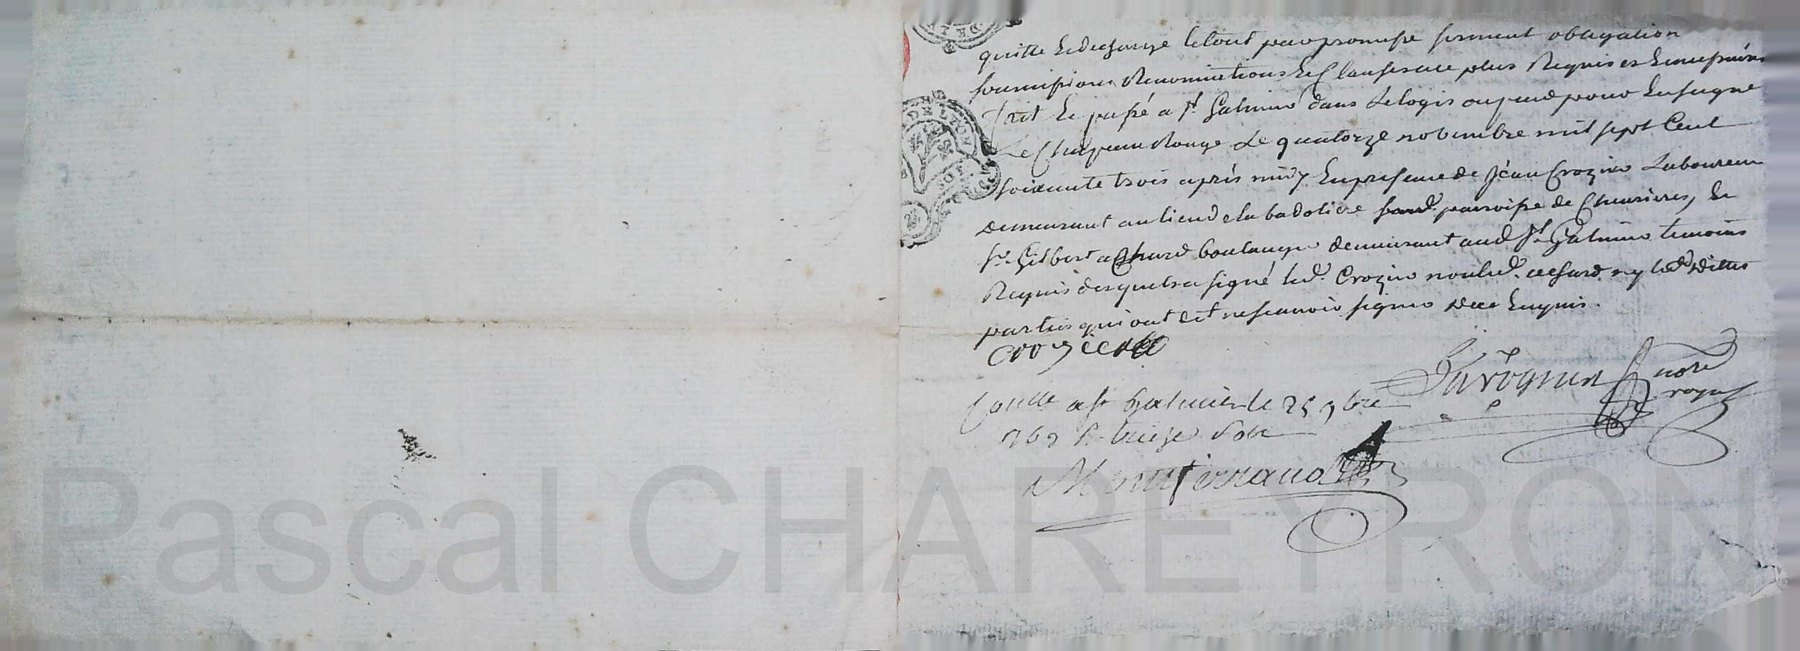 quitte et decharge le tout par promesse serment obligation
soumissions Renonciations et Clauses au plus Requises et necessaires
fait et passé a St Galmier dans le logis ou pend pour Enseigne
Le Chapeau Rouge le quatorze novembre mil sept Cent
soixante trois après midy En presence de Jean Crozier Laboureur
demeurant au lieu de la badoliere paroisse de Chevrieres, et
Sr Gilbert achard boulanger demeurant aud St Galmier temoins
Requis desquels a signé led. Crozier non led. achard ny lesd. dittes
parties qui ont dit ne scavoir signer de ce Enquis.
crozier
DE LYON
notre
royal
Conllé a St Galmier le 25 9bre
1763 R treize sols
Montferrand
Pascal CHAREYRON